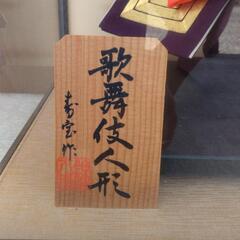 歌舞伎人形
寿宝作